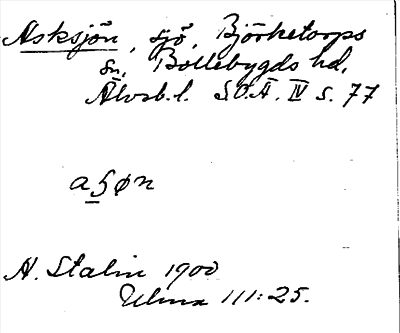 Asksjön, sjö, Björketorps
sn, Bollebygds hd,
Älvsb. l. SOÄ. IV s. 77
a§øn
A. Stalin 1900
Ulma 111:25.